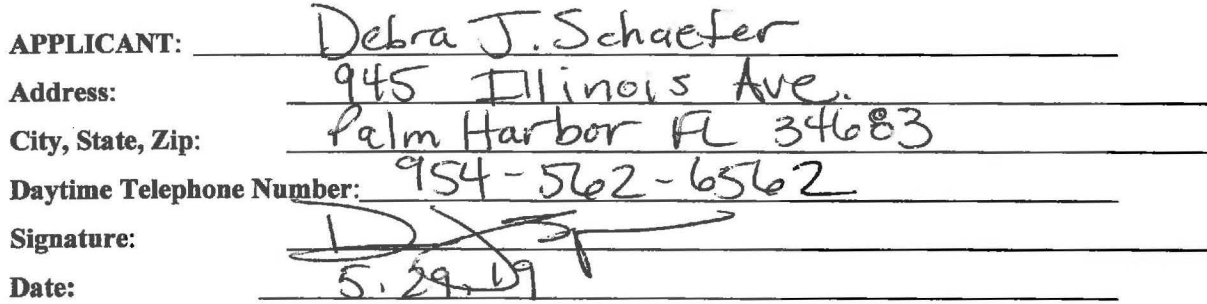 APPLICANT: Debra J. Schaefer
Address: 945 Illinois Ave.
City, State, Zip: Palm Harbor FL 34683
Daytime Telephone Number: 954-562-6562
Signature:
Date: 5.29.19